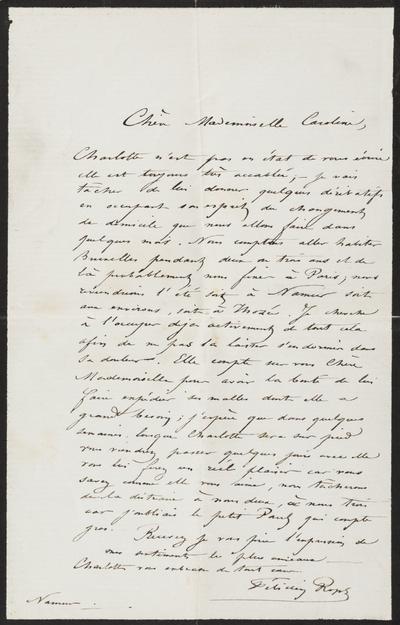 Chère Mademoiselle Caroline,
Charlotte n'est pas en état de vous écrire
elle est toujours très accablée, – je vais
tâcher de lui donner quelques dérivatifs
en occupant son esprit du changement
de domicile que nous allons faire dans
quelques mois. Nous comptons aller habiter
Bruxelles pendant deux ou trois ans et de
là probablement nous fixer à Paris; nous
reviendrons l'été soit à Namur soit
aux environs, soit à Thozée. Je cherche
à l'occuper déjà activement de tout cela
afin de ne pas la laisser s'endormir dans
sa douleur. Elle compte sur vous Chère
Mademoiselle pour avoir la bonté de lui
faire expédier ses malles dont elle a
grand besoin; j'espère que dans quelques
semaines, lorsque Charlotte sera sur pied
vous viendrez passer quelques jours avec elle
vous lui ferez un réel plaisir car vous
savez comme elle vous aime, nous tâcherons
de la distraire à nous deux, à nous trois
car j'oubliais le petit Paul qui compte
gros. Recevez je vous prie l'expression de
mes sentiments le plus amicaux
Charlotte vous embrasse de tout cœur.
Félicien Rops
Namur